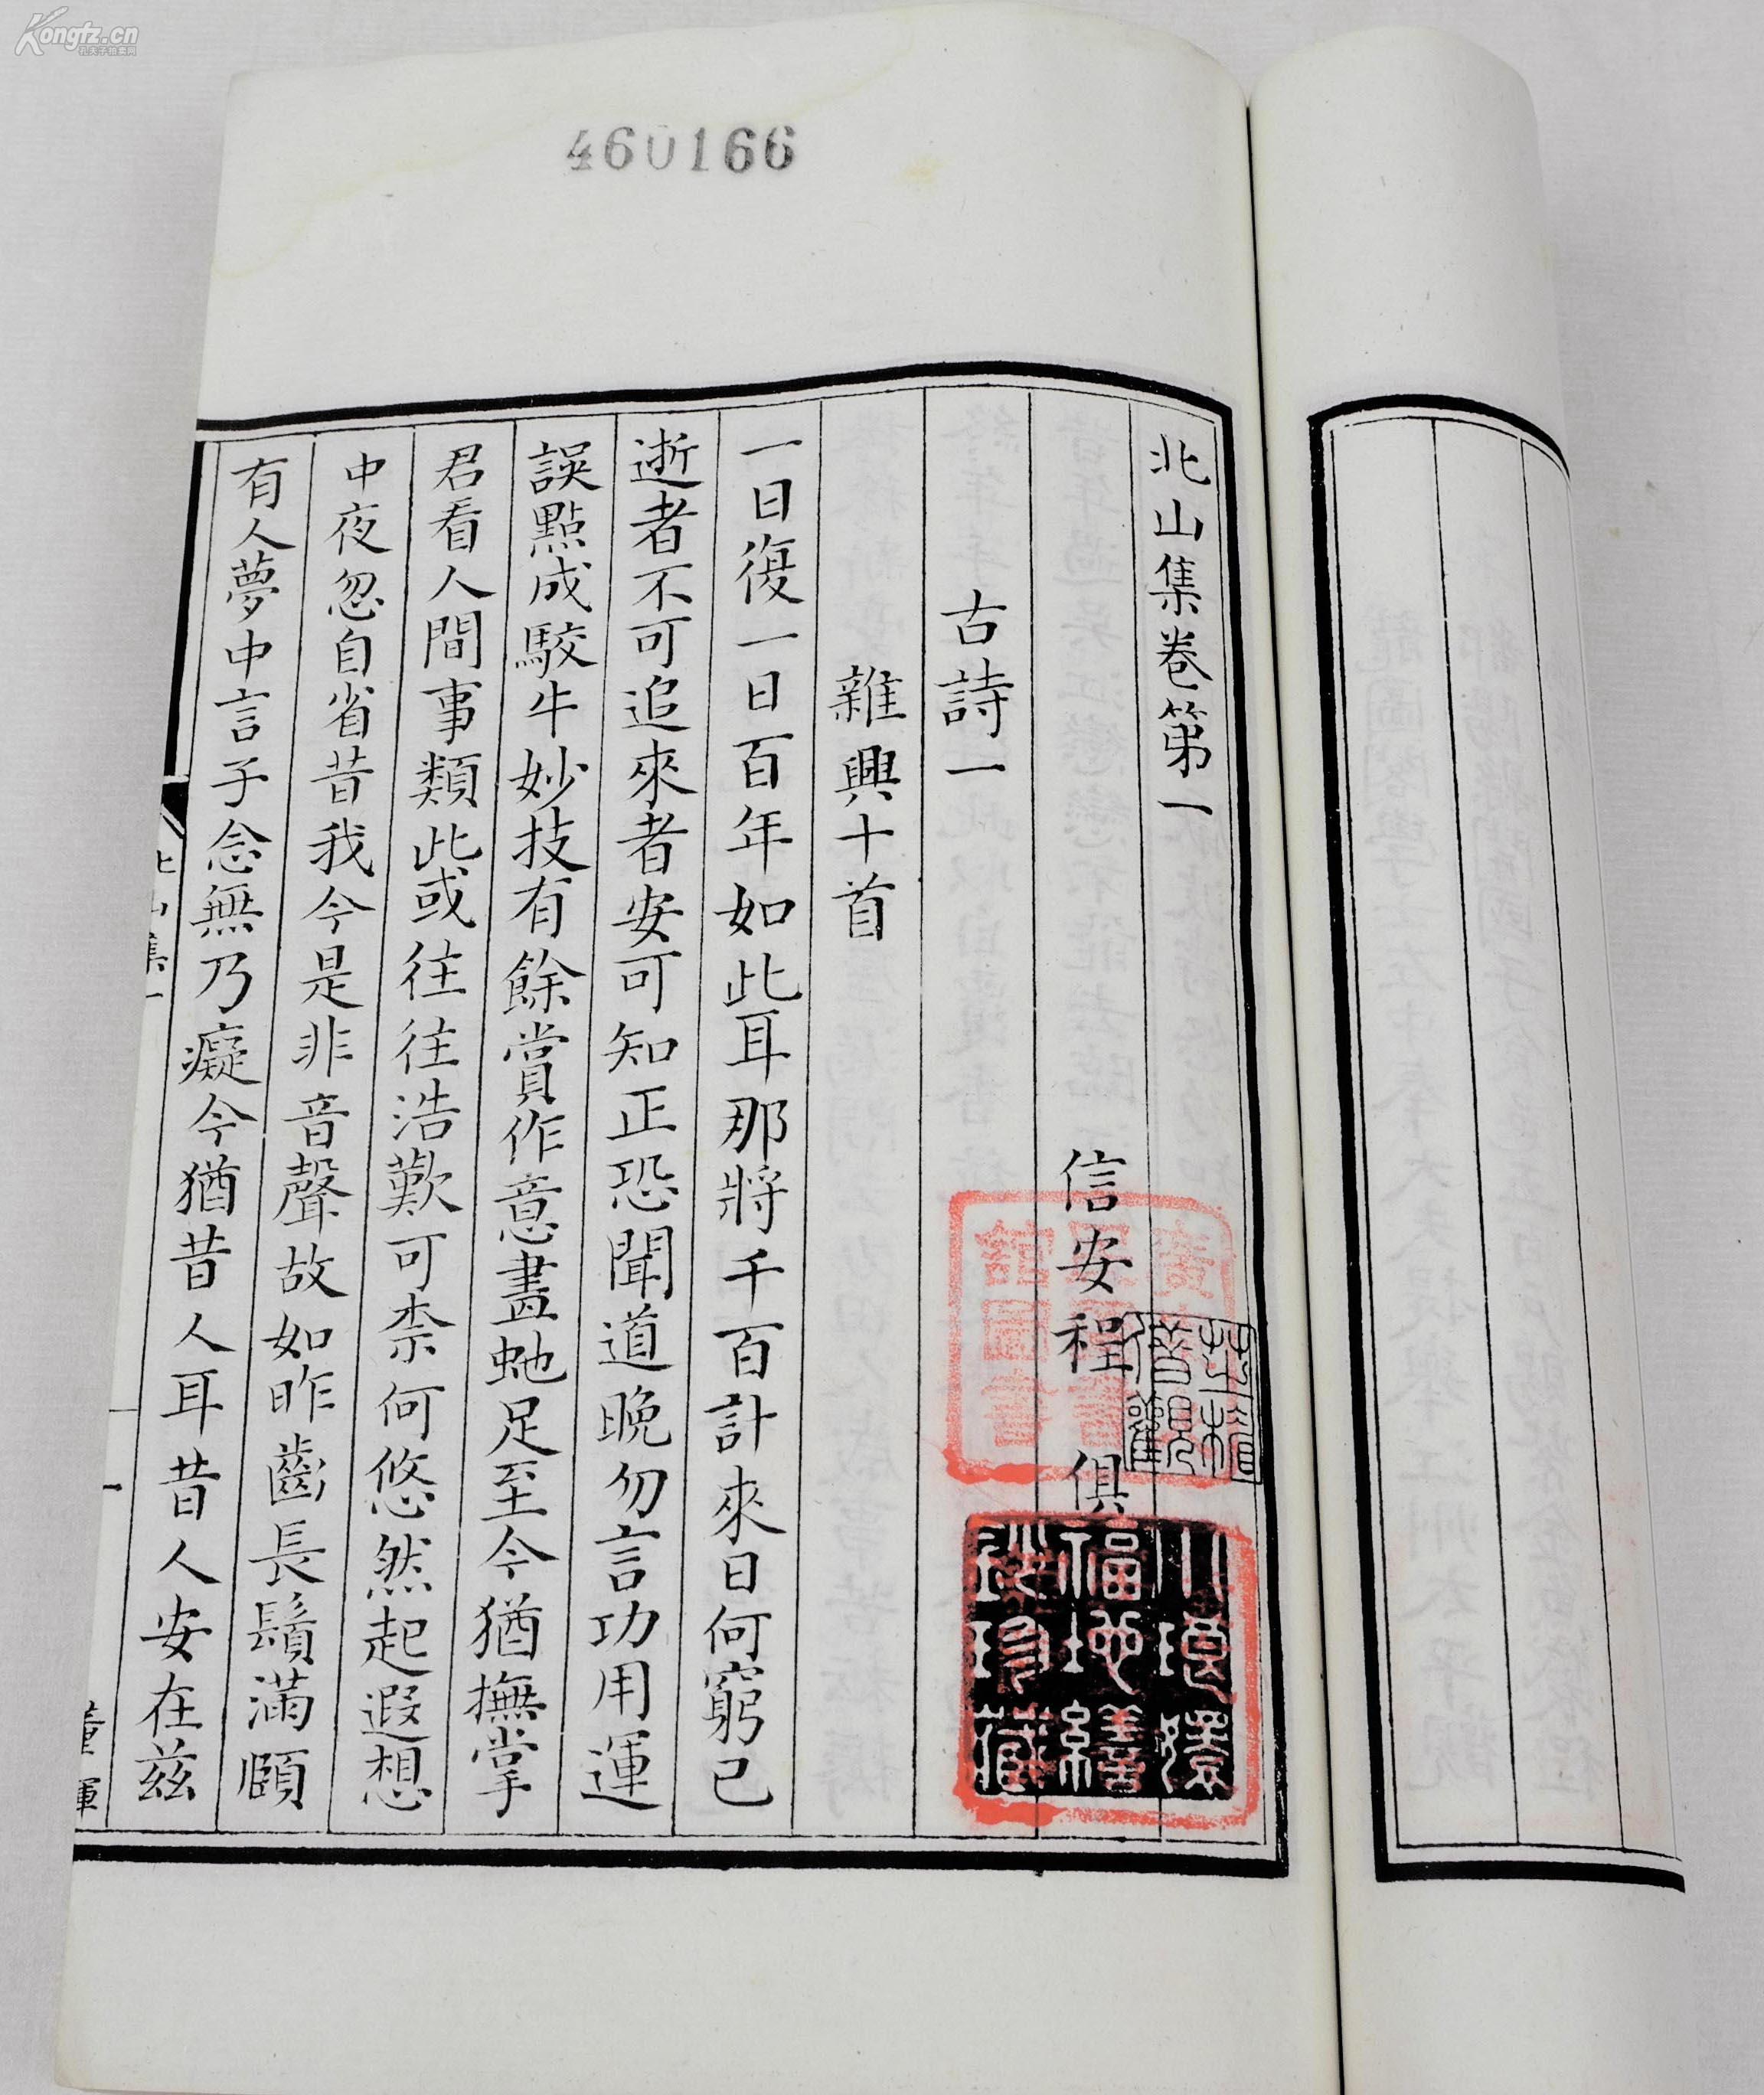 Kongfz.cn
孔夫子拍卖网
460166
北山集卷第一
信安程俱
古詩一
雜興十首
一日復一日百年如此耳那將千百計來日何窮已
逝者不可追來者安可知正恐聞道晚勿言功用運
誤點成駮牛妙技有餘賞作意畫虵足至今猶撫掌
君看人間事類此或往往浩歎可柰何悠然起遐想
中夜忽自省昔我今是非音聲故如昨齒長鬚滿頤
有人夢中言子念無乃癡今猶昔人耳昔人安在茲
北山集一
一
小琅嬛福地繕鈔珍藏